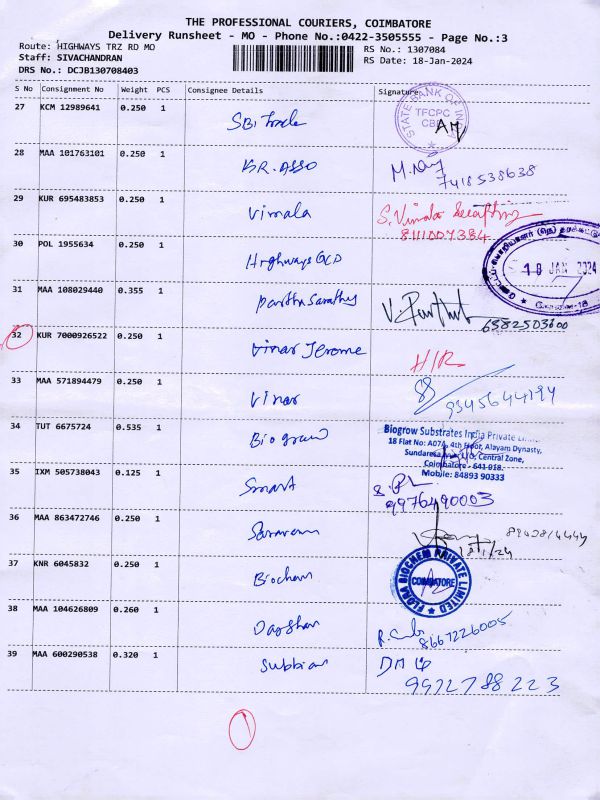 THE PROFESSIONAL COURIERS, COIMBATORE
Delivery Runsheet - MO - Phone No.:0422-3505555 - Page No.:3
Route: HIGHWAYS TRZ RD MO
RS No.: 1307084
Staff: SIVACHANDRAN
RS Date: 18-Jan-2024
DRS No.: DCJB130708403
S No Consignment No Weight PCS Consignee Details Signature
27 KCM 12989641 0.250 1 SBI Trade
STATE BANK OF INDIA
TFCPC
CBE
28 MAA 101763101 0.250 1 BR. ASSO 7418538638
29 KUR 695483853 0.250 1 Vimala S. Vimala
8111007384
30 POL 1955634 0.250 1 Highways GCD
18 JAN 2024
31 MAA 108029440 0.355 1 Parthasarathy V. Parthi 6382503600
32 KUR 7000926522 0.250 1 Vinar Jerome H/R
33 MAA 571894479 0.250 1 Vinar 9345644194
34 TUT 6675724 0.535 1 Biogrow
Biogrow Substrates India Private
18 Flat No: A07A, 4th Floor, Alayam Dynasty,
Central Zone,
Coimbatore - 641 018.
Mobile: 84893 90333
35 IXM 505738043 0.125 1 Smart
9976490003
36 MAA 863472746 0.250 1 Saravanan
18/1/24
37 KNR 6045832 0.250 1 Biochem
FLORA BIOCHEM PRIVATE LIMITED
COIMBATORE
38 MAA 104626809 0.260 1 Darshan 8667226005
39 MAA 600290538 0.320 1 Subbian
9972788223